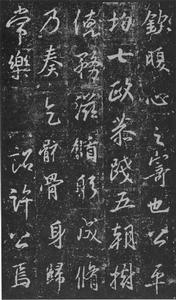 欽暇心之寄也公平
均七政恭踐五朝樹
德務滋顏彤成脩
乃奏乞骸骨身歸
常樂 詔許公焉